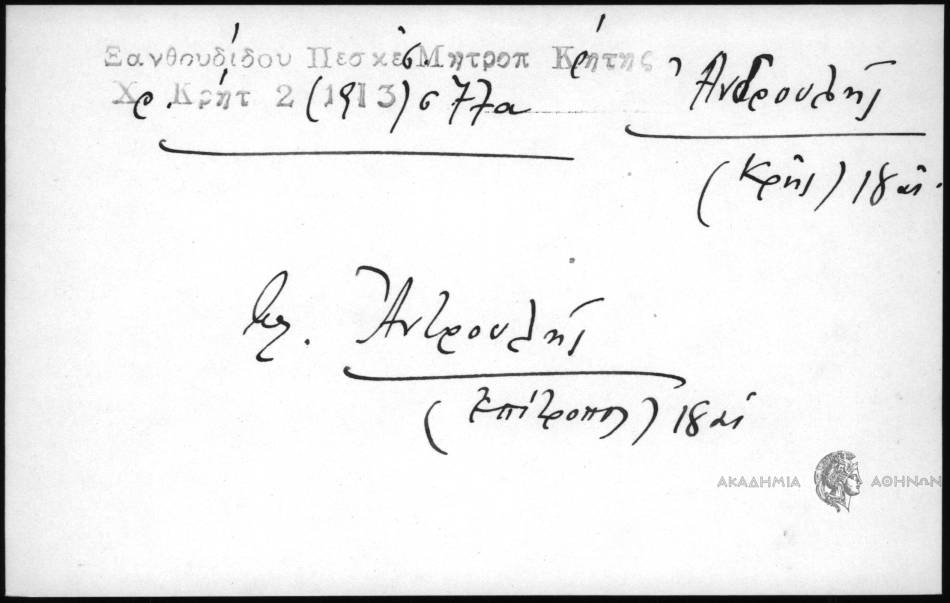 Ξανθουδίδου Πεσκέσ. Μητροπ Κρήτης
Χρ. Κρήτ 2 (1913) σ 77α
Ἀνδρουλῆς
(Κρής) 18 αἰ.
Ἀντρουλῆς
(Ἐπίτροπος) 18 αἰ
ΑΚΑΔΗΜΙΑ ΑΘΗΝΩΝ